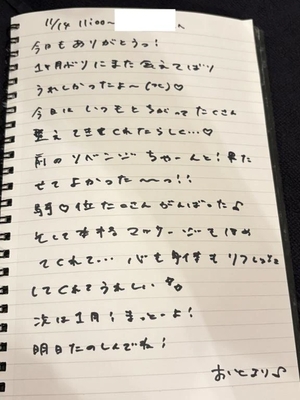 11/14 11:00〜 さん
今日もありがとうっ!
1ヶ月ぶりにまた会えてばり
うれしかったよ〜 ♡
今日は いつもとちがって たくさん
整えてきてくれたらしく…♡
前のリベンジちゃーんと!果た
せてよかった〜〜っ!!
騎♡位たくさんがんばった♪
そして マッサージもほめ
てくれて… 心も身体もリフレッシュ
してくれてうれしい
次は1月!まっとーよ!
明日たのしんでね!
おいとまり♪